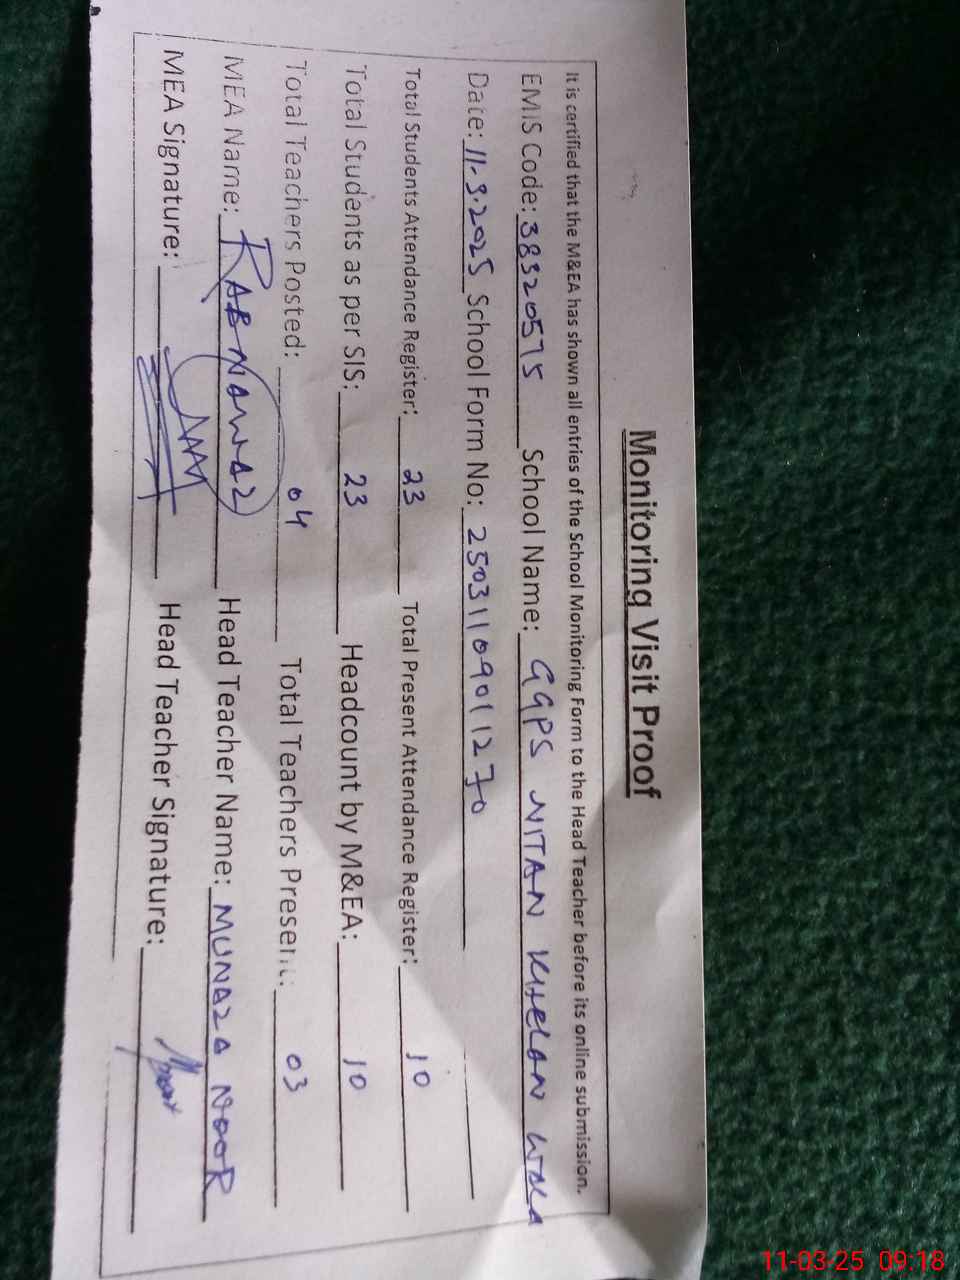 Monitoring Visit Proof
It is certified that the M&EA has shown all entries of the School Monitoring Form to the Head Teacher before its online submission.
EMIS Code: 38320575 School Name: GGPS NITAN KHELAN WALA
Date: 11-3-2025 School Form No: 25031109011270
Total Students Attendance Register: 23 Total Present Attendance Register: 10
Total Students as per SIS: 23 Headcount by M&EA: 10
Total Teachers Posted: 04 Total Teachers Present: 03
MEA Name: RAB NAWAZ Head Teacher Name: MUNAZA NOOR
MEA Signature: Head Teacher Signature:
11-03-25 09:18